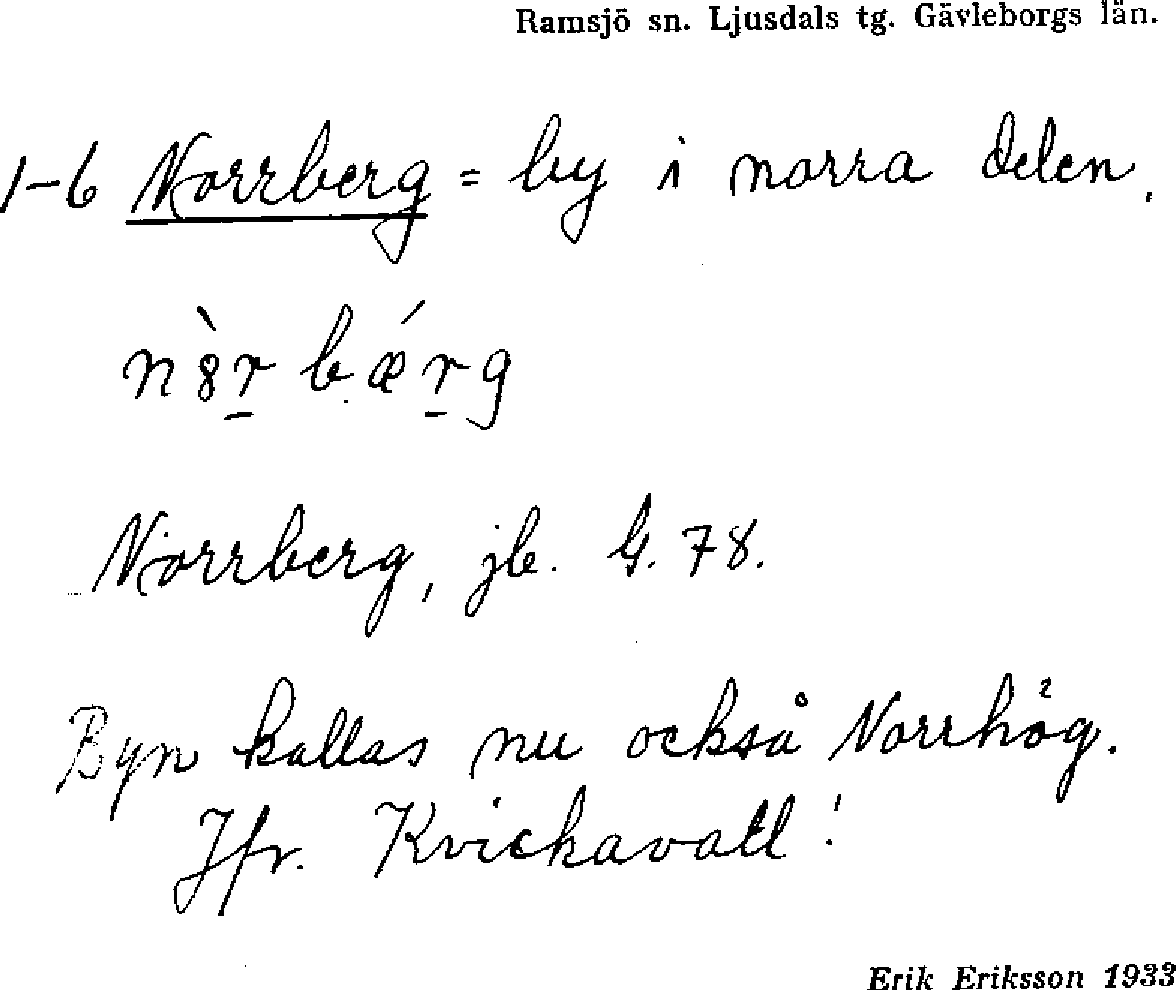 Ramsjö sn. Ljusdals tg. Gävleborgs län.
1-6 Norrberg = by i norra delen.
n8̀r̠bǽr̠g
Norrberg, jb. G. 78.
Byn kallas nu också Norrhög.
Jfr. Kvickavall!
Erik Eriksson 1933